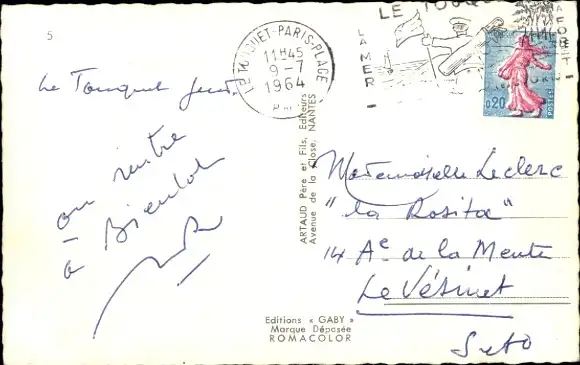 5
Le Touquet jeudi
on rentre
à Bientôt
LE TOUQUET-PARIS-PLAGE
11H45
9-7
1964
LE TOUQU
LA MER
LA FORET
0,20
POSTES
ARTAUD Père et Fils, Editeurs
Avenue de la Close, NANTES
Mademoiselle Leclerc
"La Rosita"
14 Ae de la Meute
Le Vésinet
S et O
Editions « GABY »
Marque Déposée
ROMACOLOR